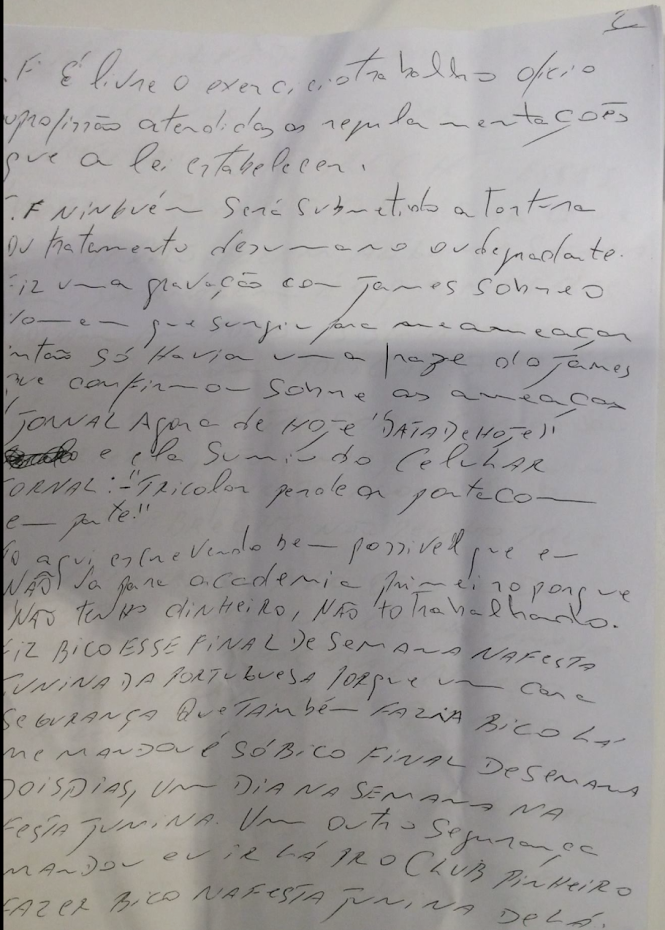 2
.F É livre o exercicio trabalho oficio
uprofissão atendidas as regula mentações
que a lei estabelecer.
.F NINGUÉM Será Submetido a Tortura
OU tratamento desumano ou degradante.
FIZ uma gravação com James sobre o
que surgiu para me ameaçar
então só Havia uma fraze do James
que confirmou sobre as ameaças
JORNAL Agora de HOJE "DATA DE HOJE"
e ela Sumiu do CeluHAR
JORNAL: "Tricolor perde a
em parte."
To aqui escrevendo bem possivel que eu
NÃO Vá para academia primeiro porque
NÃO tenHo dinheiro, NÃO to Trabalhando.
FIZ BICO ESSE FINAL DE SEMANA NA FESTA
JUNINA DA PORTUGUESA PORque um cara
SEGURANÇA QUE TAMbéM FAZIA BICO LÁ
ME MANDOU É SÓ BICO FINAL DE SEMANA
DOIS DIAS, UM DIA NA SEMANA NA
FESTA JUNINA. Um outro Segurança
MANDOU EU IR LÁ PRO CLUB PINHEIRO
FAZER BICO NA FESTA JUNINA DE LÁ.